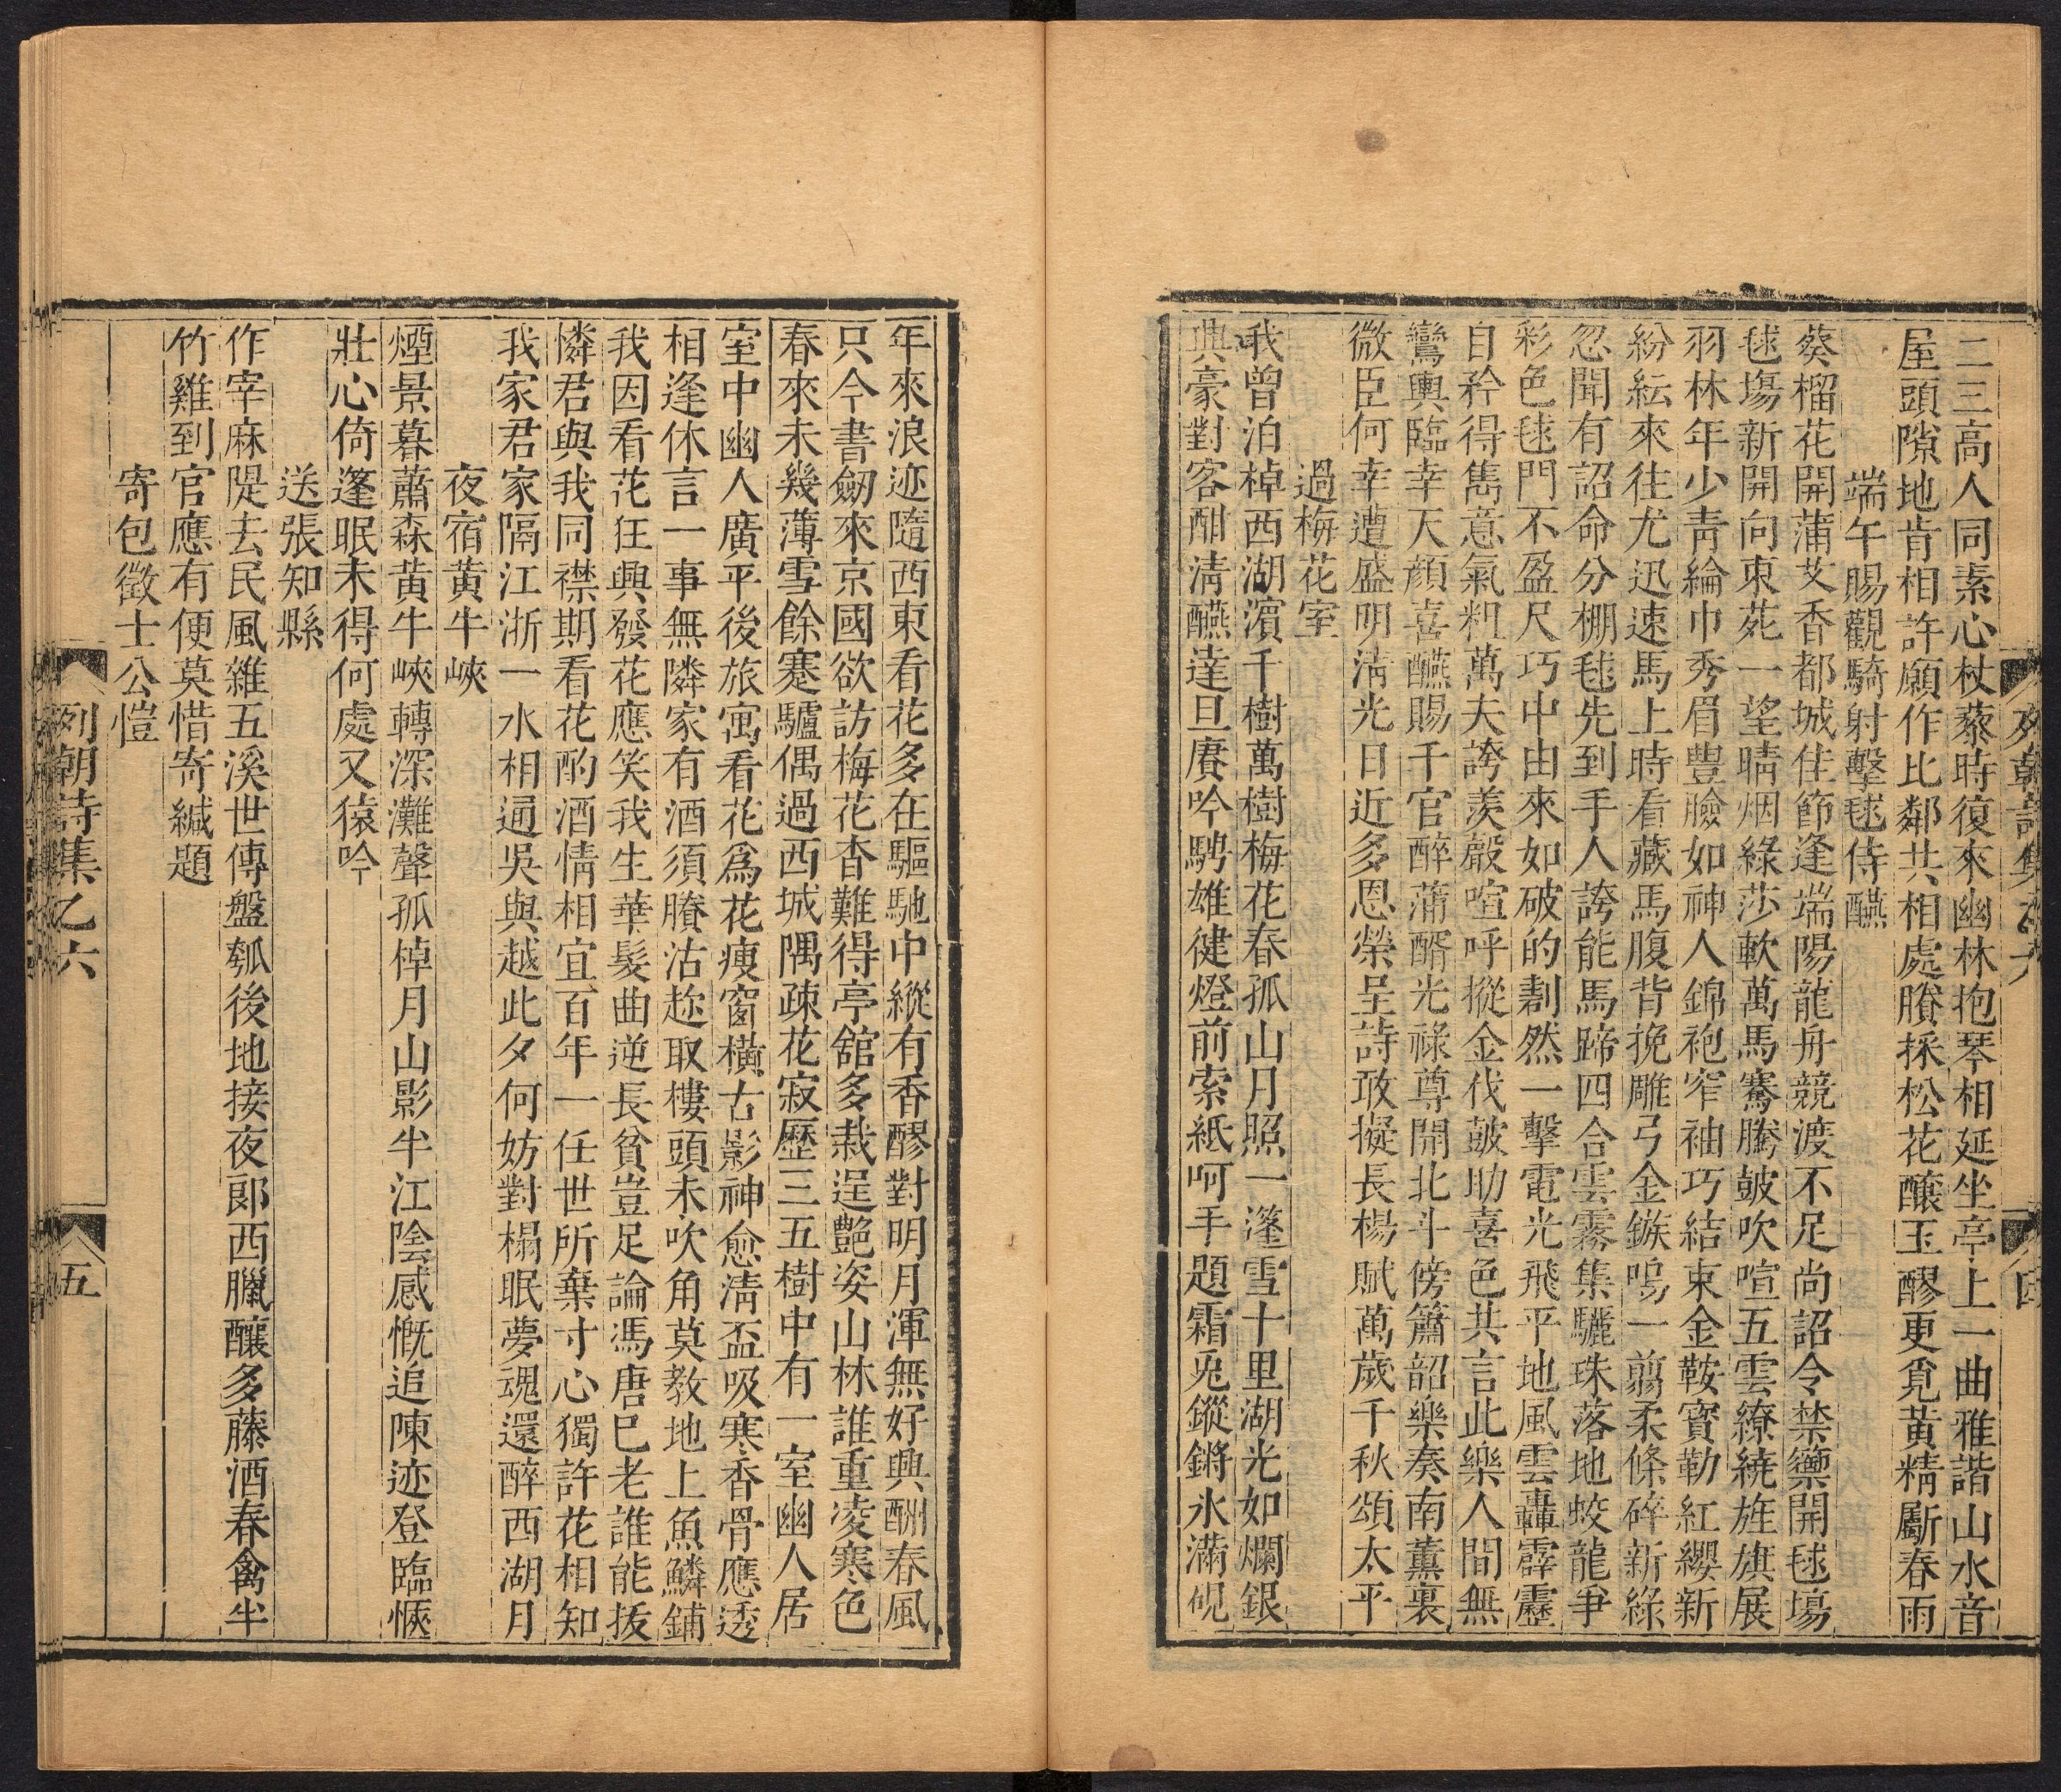 二三高人同素心杖藜時復來幽林抱琴相延坐亭上一曲雅諧山水音
屋頭隙地肯相許願作比鄰共相處賸採松花釀玉醪更覓黃精斸春雨
端午賜觀騎射擊毬侍醼
葵榴花開蒲艾香都城佳節逢端陽龍舟競渡不足尚詔令禁籞開毬場
毬塲新開向東苑一望晴烟綠莎軟萬馬騫騰皷吹喧五雲繚繞旌旗展
羽林年少青綸巾秀眉豐臉如神人錦袍窄袖巧結束金鞍寳勒紅纓新
紛紜來往尤迅速馬上時看藏馬腹背挽雕弓金鏃鳴一翦柔條碎新綠
忽聞有詔命分棚毬先到手人誇能馬蹄四合雲霧集驪珠落地蛟龍爭
彩色毬門不盈尺巧中由來如破的剨然一擊電光飛平地風雲轟霹靂
自矜得雋意氣粗萬夫誇羨嚴喧呼摐金伐皷助喜色共言此樂人間無
鸞輿臨幸天顔喜醼賜千官醉蒲醑光祿尊開北斗傍簫韶樂奏南薰裏
微臣何幸遭盛明清光日近多恩榮呈詩敢擬長楊賦萬歲千秋頌太平
過梅花室
我曾泊棹西湖濵千樹萬樹梅花春孤山月照一篷雪十里湖光如爛銀
典豪對客酣清醼達旦賡吟騁雄健燈前索紙呵手題霜兎鏦鏘氷滿硯
列朝詩集乙六
四
年來浪迹隨西東看花多在驅馳中縱有香醪對明月渾無好興酬春風
只今書劒來京國欲訪梅花杳難得亭舘多栽逞艷姿山林誰重凌寒色
春來未幾薄雪餘蹇驢偶過西城隅疎花寂歷三五樹中有一室幽人居
室中幽人廣平後旅寓看花爲花瘦窗橫古影神愈清盃吸寒香骨應透
相逢休言一事無隣家有酒須賸沽趂取樓頭未吹角莫教地上魚鱗鋪
我因看花狂興發花應笑我生華髮曲逆長貧豈足論馮唐巳老誰能拔
憐君與我同襟期看花酌酒情相宜百年一任世所棄寸心獨許花相知
我家君家隔江浙一水相通吳與越此夕何妨對榻眠夢魂還醉西湖月
夜宿黃牛峽
煙景暮蕭森黃牛峽轉深灘聲孤棹月山影半江陰感慨追陳迹登臨愜
壯心倚篷眠未得何處又猿吟
送張知縣
作宰麻隄去民風雜五溪世傳盤瓠後地接夜郎西臘釀多藤酒春禽半
竹雞到官應有便莫惜寄緘題
寄包徵士公愷
列朝詩集乙六
五